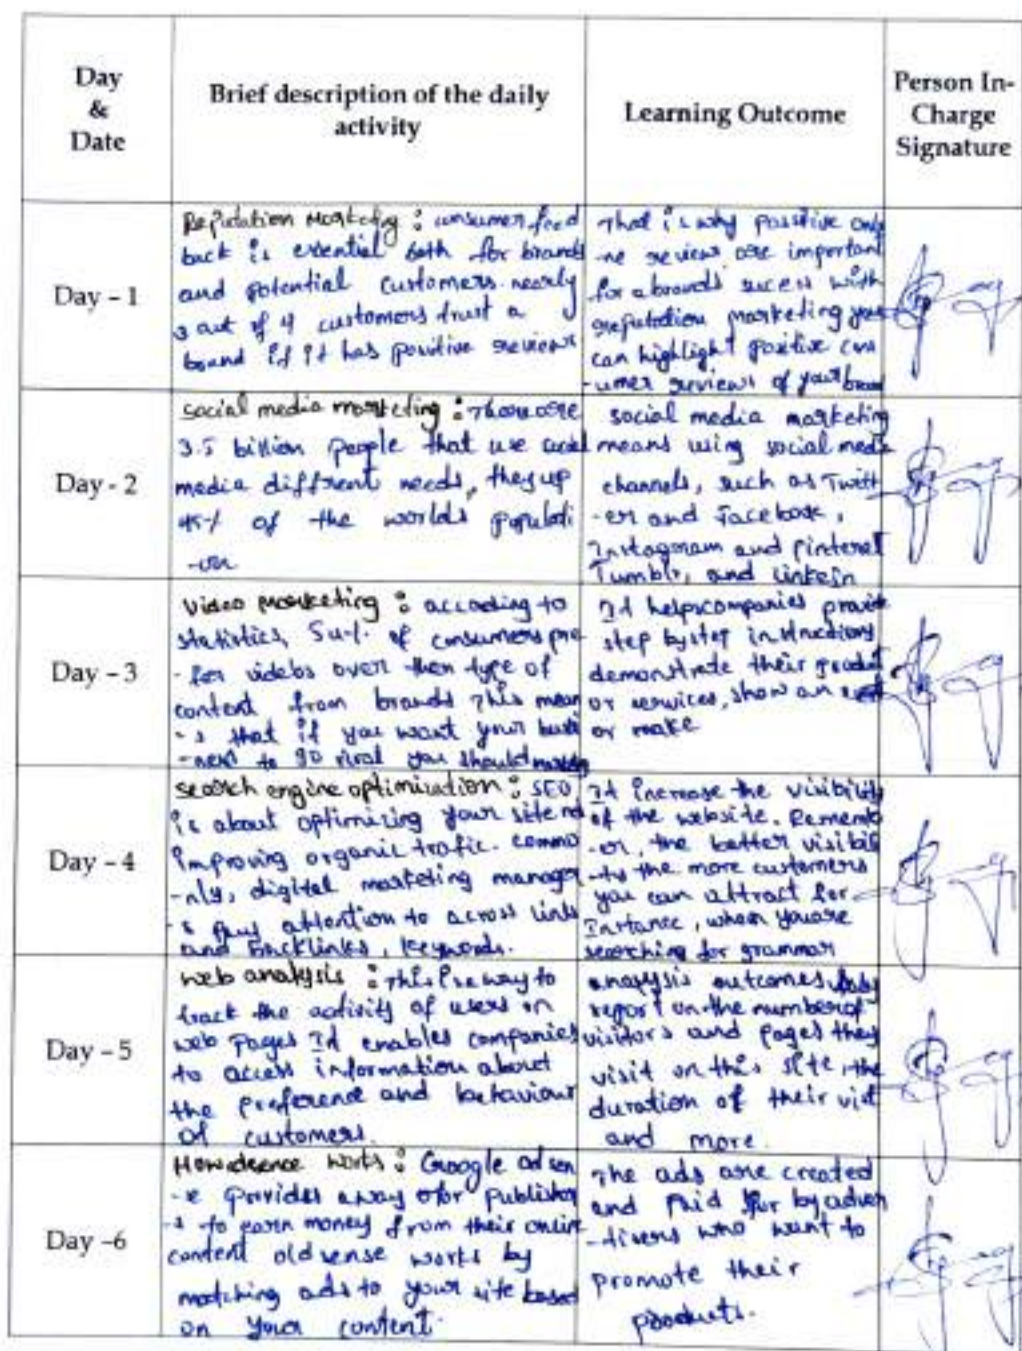 Day
&
Date
Brief description of the daily
activity
Learning Outcome
Person In-
Charge
Signature
Day – 1
Reputation Marketing : consumer feed
back is essential both for brands
and potential customers. nearly
3 out of 4 customers trust a
brand if it has positive reviews
That is why possitive onli
-ne reviews are important
for a brands sucess with
reputation marketing you
can highlight positive con
-umer reviews of your brand
Day - 2
Social media marketing : There are
3.5 billion people that use social
media different needs, they up
45% of the worlds populati
-on
social media marketing
means using social media
channels, such as Twitt
-er and Facebook,
Instagram and pinterest
Tumblr, and linkein
Day – 3
Video Marketing : according to
statistics, 54% of consumers pre
-fer videos over then type of
content from brands This mean
-s that if you want your busi
-ness to go viral you should
It helps companies provide
step by step instructions
demonstrate their product
or services, show an
or make
Day – 4
search engine optimization : SEO
is about optimizing your site nd
improving organic trafic. commo
-nly, digital marketing manager
-s attention to across links
and backlinks, keywords.
It increase the visibility
of the website. Rememb
-er, the better visibili
-ty the more customers
you can attract for
Instance, when you are
searching for grammar
Day – 5
web analysis : This is a way to
track the activity of users on
web pages It enables companies
to access information about
the preference and behaviour
of customers.
anaysis outcomes
report on the number of
visitors and pages they
visit on this site, the
duration of their visit
and more.
Day –6
How works : Google adsen
-e provides away for publisher
-s to earn money from their online
content adsense works by
matching ads to your site based
on your content.
The ads are created
and paid for by adver
-tisers who want to
promote their
products.